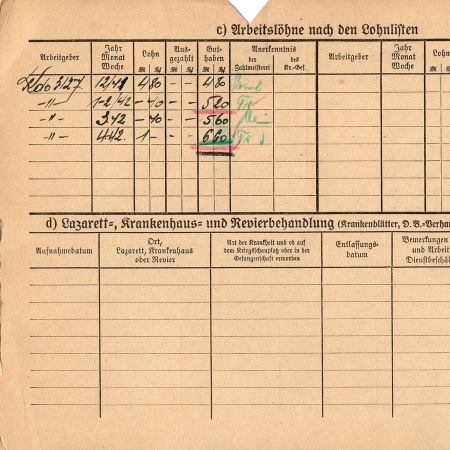 c) Arbeitslöhne nach den Lohnlisten
Arbeitgeber Jahr Monat Woche Lohn Aus- gezahlt Gut- haben Anerkenntnis der Zahlmeisterei des Kr.-Gef. Arbeitgeber Jahr Monat Woche Lohn
ℛℳ ₰ ℛℳ ₰ ℛℳ ₰ ℛℳ
Kdo 3127. 12/41 4 80 – – 4 80
–"– 1-2/42 – 40 – – 5 20
–"– 3.42 – 40 – – 5 60
–"– 4.42. 1 – – – 6 60
d) Lazarett-, Krankenhaus- und Revierbehandlung (Krankenblätter, D. B.-Verha
Aufnahmedatum Ort, Lazarett, Krankenhaus oder Revier Art der Krankheit und ob auf dem Kriegsschauplatz oder in der Gefangenschaft erworben Entlassungs- datum Bemerkungen und Arbeit Dienstbeschä